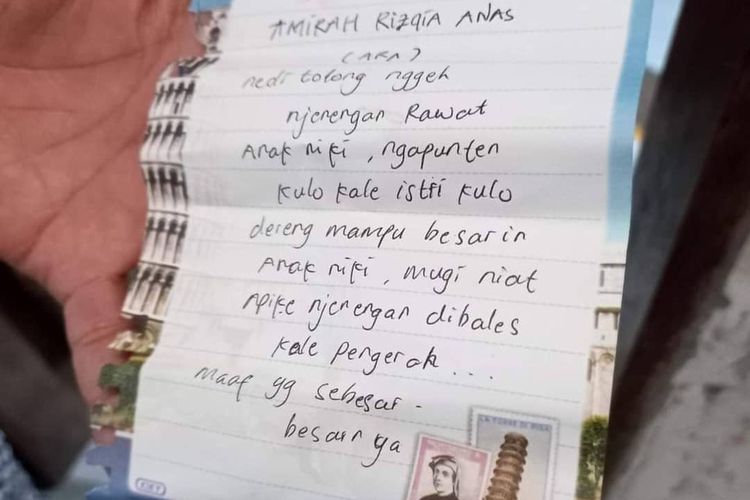 AMIRAH RIZQIA ANAS
(ARA)
nedi tolong nggeh
njenengan Rawat
Anak niki, ngapunten
kulo kale istri kulo
dereng mampu besarin
Anak niki, mugi niat
Apike njenengan dibales
kale pengeran...
maaf yg sebesar-
besarnya
LA TORRE DI PISA